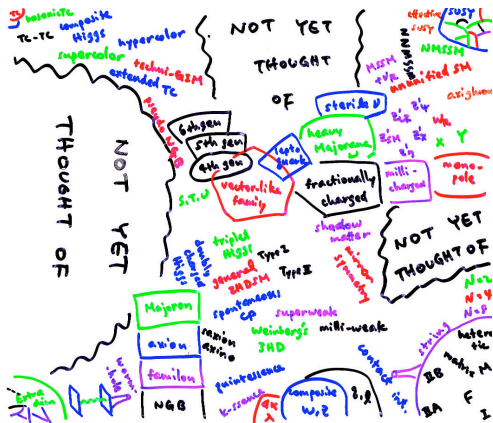 bosonic TC
TC-TC
composite
Higgs
hypercolor
supercolor
techni-GIM
extended TC
pseudo NGB
NOT YET
THOUGHT
OF
NOT YET
THOUGHT OF
effective
SUSY
SUSY
NMSSM
NNMSSM
MSSM
ununified SM
axigluon
sterile ν
heavy
Majorana ν
6th gen
5th gen
4th gen
lepto
quark
vector-like
family
fractionally
charged
X
Y
milli-
charged
mono-
pole
S.T.U
shadow
matter
mirror
symmetry
NOT YET
THOUGHT OF
doubly
charged
Higgs
triplet
Higgs
general
2HDSM
Type I
Type II
spontaneous
CP
superweak
Weinberg's
3HD
milli-weak
Majoron
axion
saxion
axino
familon
NGB
quintessence
worm-
hole
Extra
dim
composite
W, Z
Contact
string
N=2
hetero
tic
Matrix
M
IIB
IIA
F
I